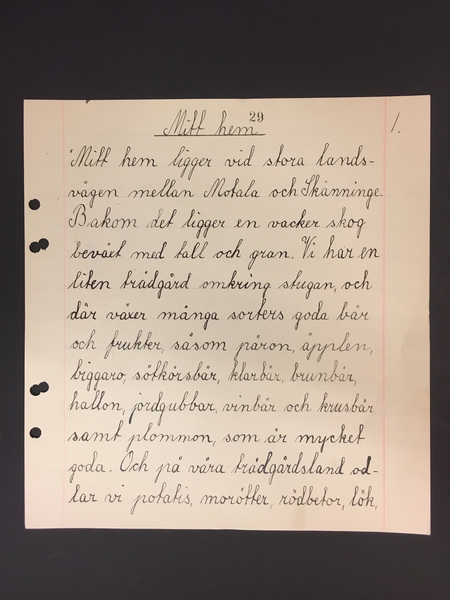 29
Mitt hem
1.
"Mitt hem ligger vid stora lands-
vägen mellan Motala och Skänninge.
Bakom det ligger en vacker skog
beväxt med tall och gran. Vi har en
liten trädgård omkring stugan, och
där växer många sorters goda bär
och frukter, såsom päron, äpplen,
biggaro, sötkörsbär, klarbär, brunbär,
hallon, jordgubbar, vinbär och krusbär
samt plommon, som är mycket
goda. Och på våra trädgårdsland od-
lar vi potatis, morötter, rödbetor, lök,